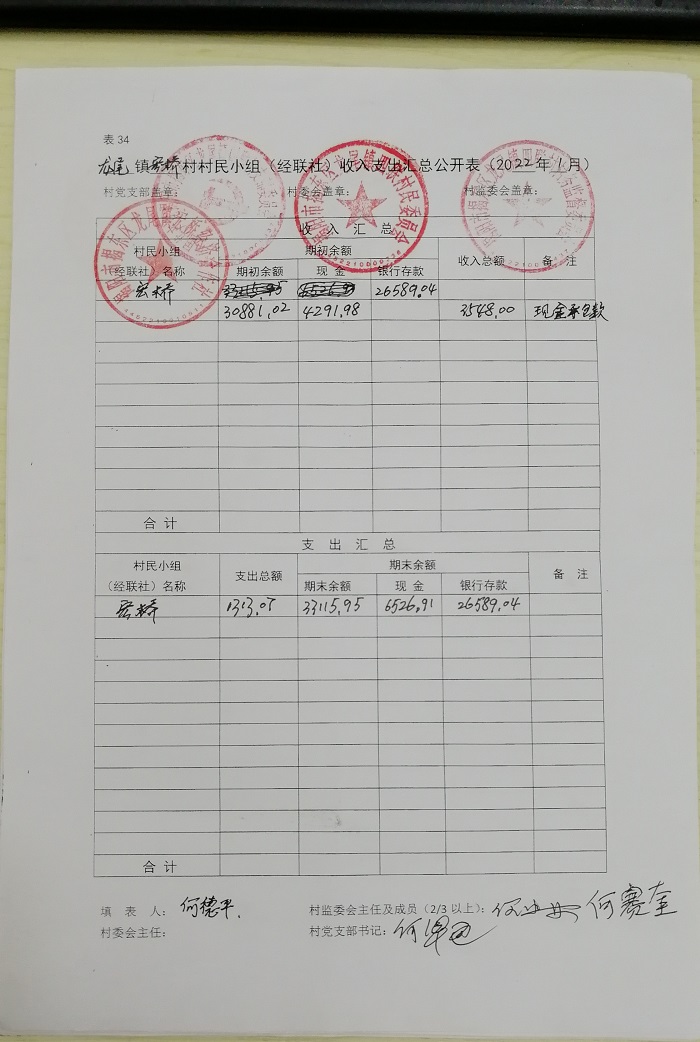 表 34
龙尾镇宏桥村村民小组（经联社）收入支出汇总公开表（2022年1月）
村党支部盖章： 村委会盖章： 村监委会盖章：
收 入 汇 总
村民小组（经联社）名称 期初余额 收入总额 备 注
期初余额 现 金 银行存款
宏桥 26589.04
30881.02 4291.98 3548.00 现金承包款
合 计
支 出 汇 总
村民小组（经联社）名称 支出总额 期末余额 备 注
期末余额 现 金 银行存款
宏桥 1313.07 33115.95 6526.91 26589.04
合 计
填 表 人： 何德平 村监委会主任及成员（2/3 以上）： 何赛奎
村委会主任： 村党支部书记：